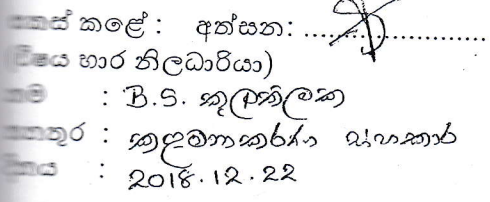 සකස් කළේ : අත්සන: ........................
(විෂය භාර නිලධාරියා)
නම : B.S. කුලතිලක
තනතුර : කළමනාකරණ සහකාර
දිනය : 2018.12.22